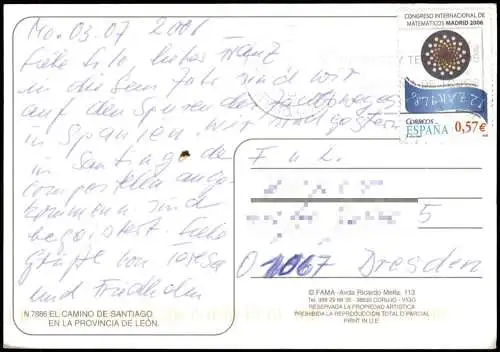 Mo. 03.07 2006
Liebe Lilo, lieber Franz
in diesem Jahr sind wir
auf den Spuren des Jakobsweges
in Spanien. Wir sind gestern
in Santiago de
Compostella ange-
kommen und sind
begeistert. Liebe
Grüße von Teresa
und Friedhelm
N 7886 EL CAMINO DE SANTIAGO
EN LA PROVINCIA DE LEÓN.
CONGRESO INTERNACIONAL DE
MATEMÁTICOS MADRID 2006
CORREOS
ESPAÑA 0,57€
F u L.
5
01067 Dresden
© FAMA - Avda Ricardo Mella, 113
36330 CORUJO - VIGO
RESERVADA LA PROPIEDAD ARTISTICA
PROHIBIDA LA REPRODUCCION TOTAL O PARCIAL
PRINT IN U.E